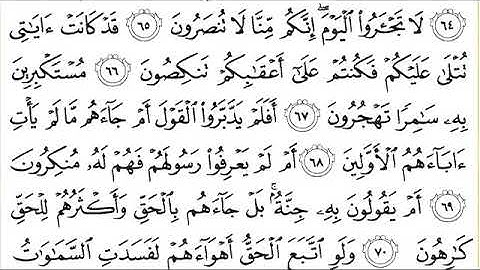 ٦٤ لَا تَجْـَٔرُوا۟ ٱلْيَوْمَ ۖ إِنَّكُم مِّنَّا لَا تُنصَرُونَ ٦٥ قَدْ كَانَتْ ءَايَـٰتِى
تُتْلَىٰ عَلَيْكُمْ فَكُنتُمْ عَلَىٰٓ أَعْقَـٰبِكُمْ تَنكِصُونَ ٦٦ مُسْتَكْبِرِينَ
بِهِۦ سَـٰمِرًا تَهْجُرُونَ ٦٧ أَفَلَمْ يَدَّبَّرُوا۟ ٱلْقَوْلَ أَمْ جَآءَهُم مَّا لَمْ يَأْتِ
ءَابَآءَهُمُ ٱلْأَوَّلِينَ ٦٨ أَمْ لَمْ يَعْرِفُوا۟ رَسُولَهُمْ فَهُمْ لَهُۥ مُنكِرُونَ
٦٩ أَمْ يَقُولُونَ بِهِۦ جِنَّةٌۢ ۚ بَلْ جَآءَهُم بِٱلْحَقِّ وَأَكْثَرُهُمْ لِلْحَقِّ
كَـٰرِهُونَ ٧٠ وَلَوِ ٱتَّبَعَ ٱلْحَقُّ أَهْوَآءَهُمْ لَفَسَدَتِ ٱلسَّمَـٰوَٰتُ